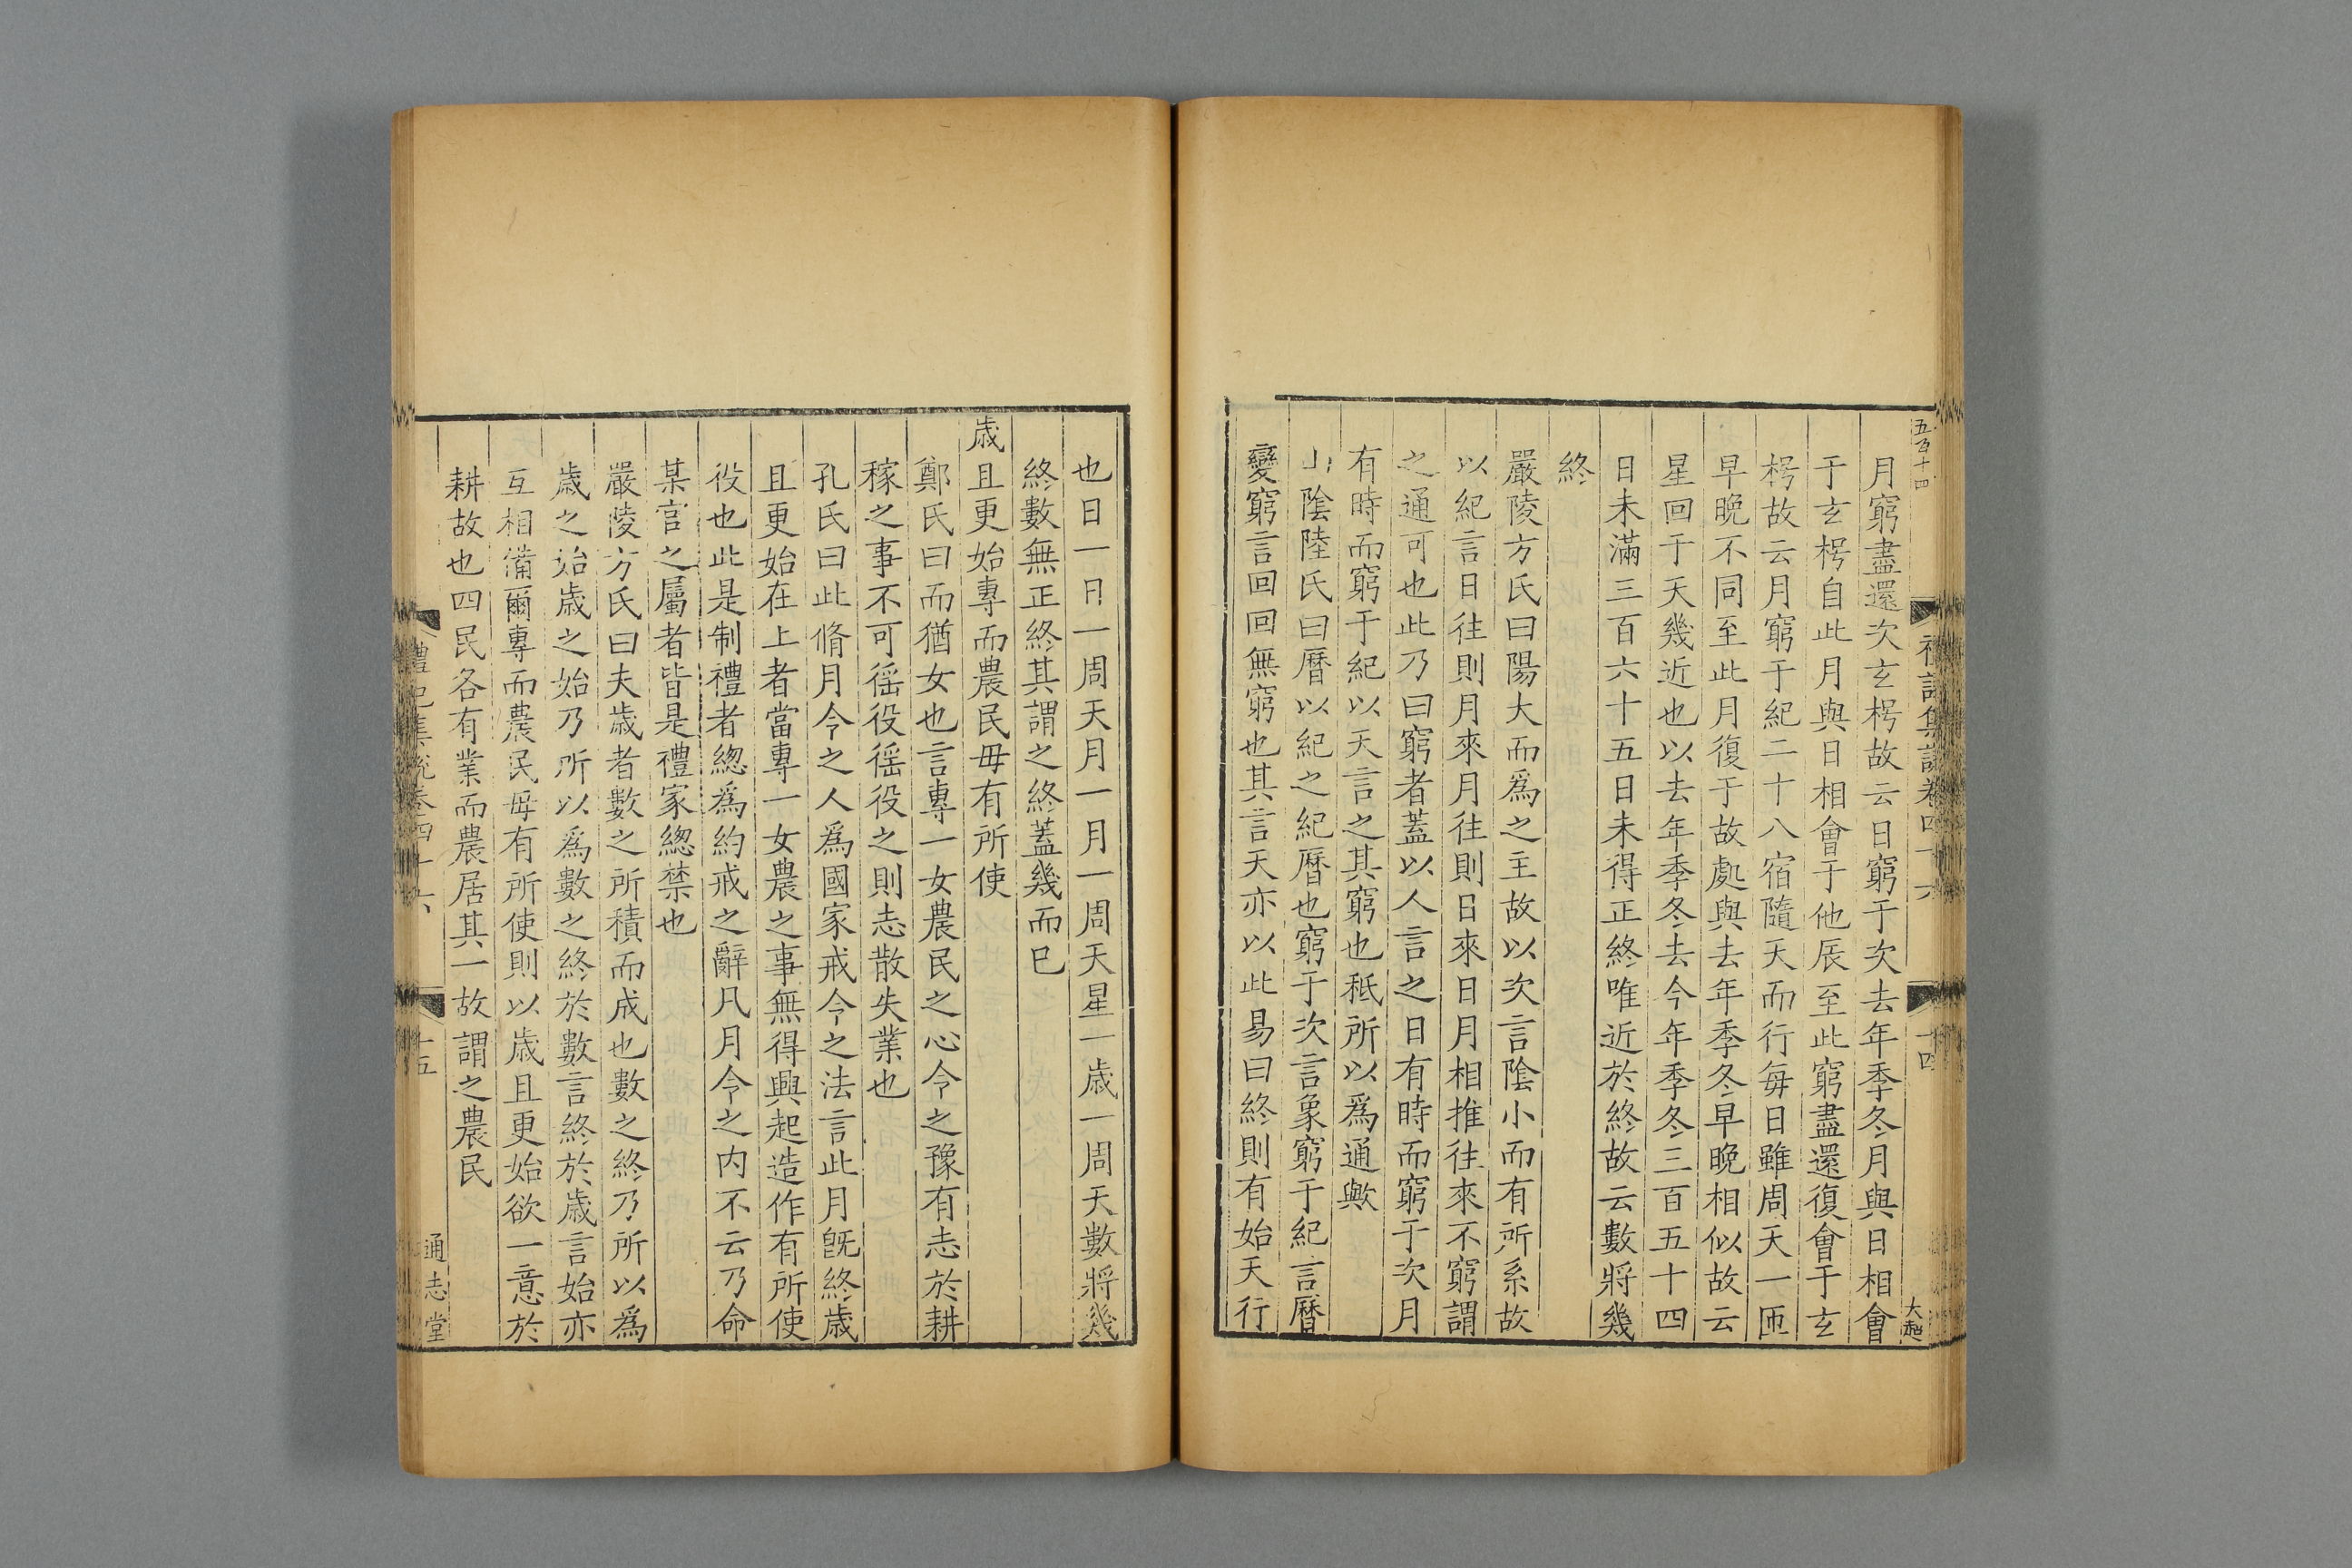 五百十四
禮記集說卷四十六
十四
大超
月窮盡還次玄枵故云日窮于次去年季冬月與日相會
于玄枵自此月與日相會于他辰至此窮盡還復會于玄
枵故云月窮于紀二十八宿隨天而行每日雖周天一匝
早晚不同至此月復于故處與去年季冬早晚相似故云
星回于天幾近也以去年季冬去今年季冬三百五十四
日未滿三百六十五日未得正終唯近於終故云數將幾
終
嚴陵方氏曰陽大而爲之主故以次言陰小而有所系故
以紀言日往則月來月往則日來日月相推往來不窮謂
之通可也此乃曰窮者蓋以人言之日有時而窮于次月
有時而窮于紀以天言之其窮也秪所以爲通歟
山陰陸氏曰曆以紀之紀曆也窮于次言象窮于紀言曆
變窮言回回無窮也其言天亦以此易曰終則有始天行
也日一日一周天月一月一周天星一歳一周天數將幾
終數無正終其謂之終蓋幾而已
歳且更始專而農民毋有所使
鄭氏曰而猶女也言專一女農民之心令之豫有志於耕
稼之事不可徭役徭役之則志散失業也
孔氏曰此脩月令之人爲國家戒令之法言此月旣終歳
且更始在上者當專一女農之事無得興起造作有所使
役也此是制禮者緫爲約戒之辭凡月令之内不云乃命
某官之屬者皆是禮家緫禁也
嚴陵方氏曰夫歳者數之所積而成也數之終乃所以爲
歳之始歳之始乃所以爲數之終於數言終於歳言始亦
互相備爾專而農民毋有所使則以歳且更始欲一意於
耕故也四民各有業而農居其一故謂之農民
禮記集說卷四十六
十五
通志堂